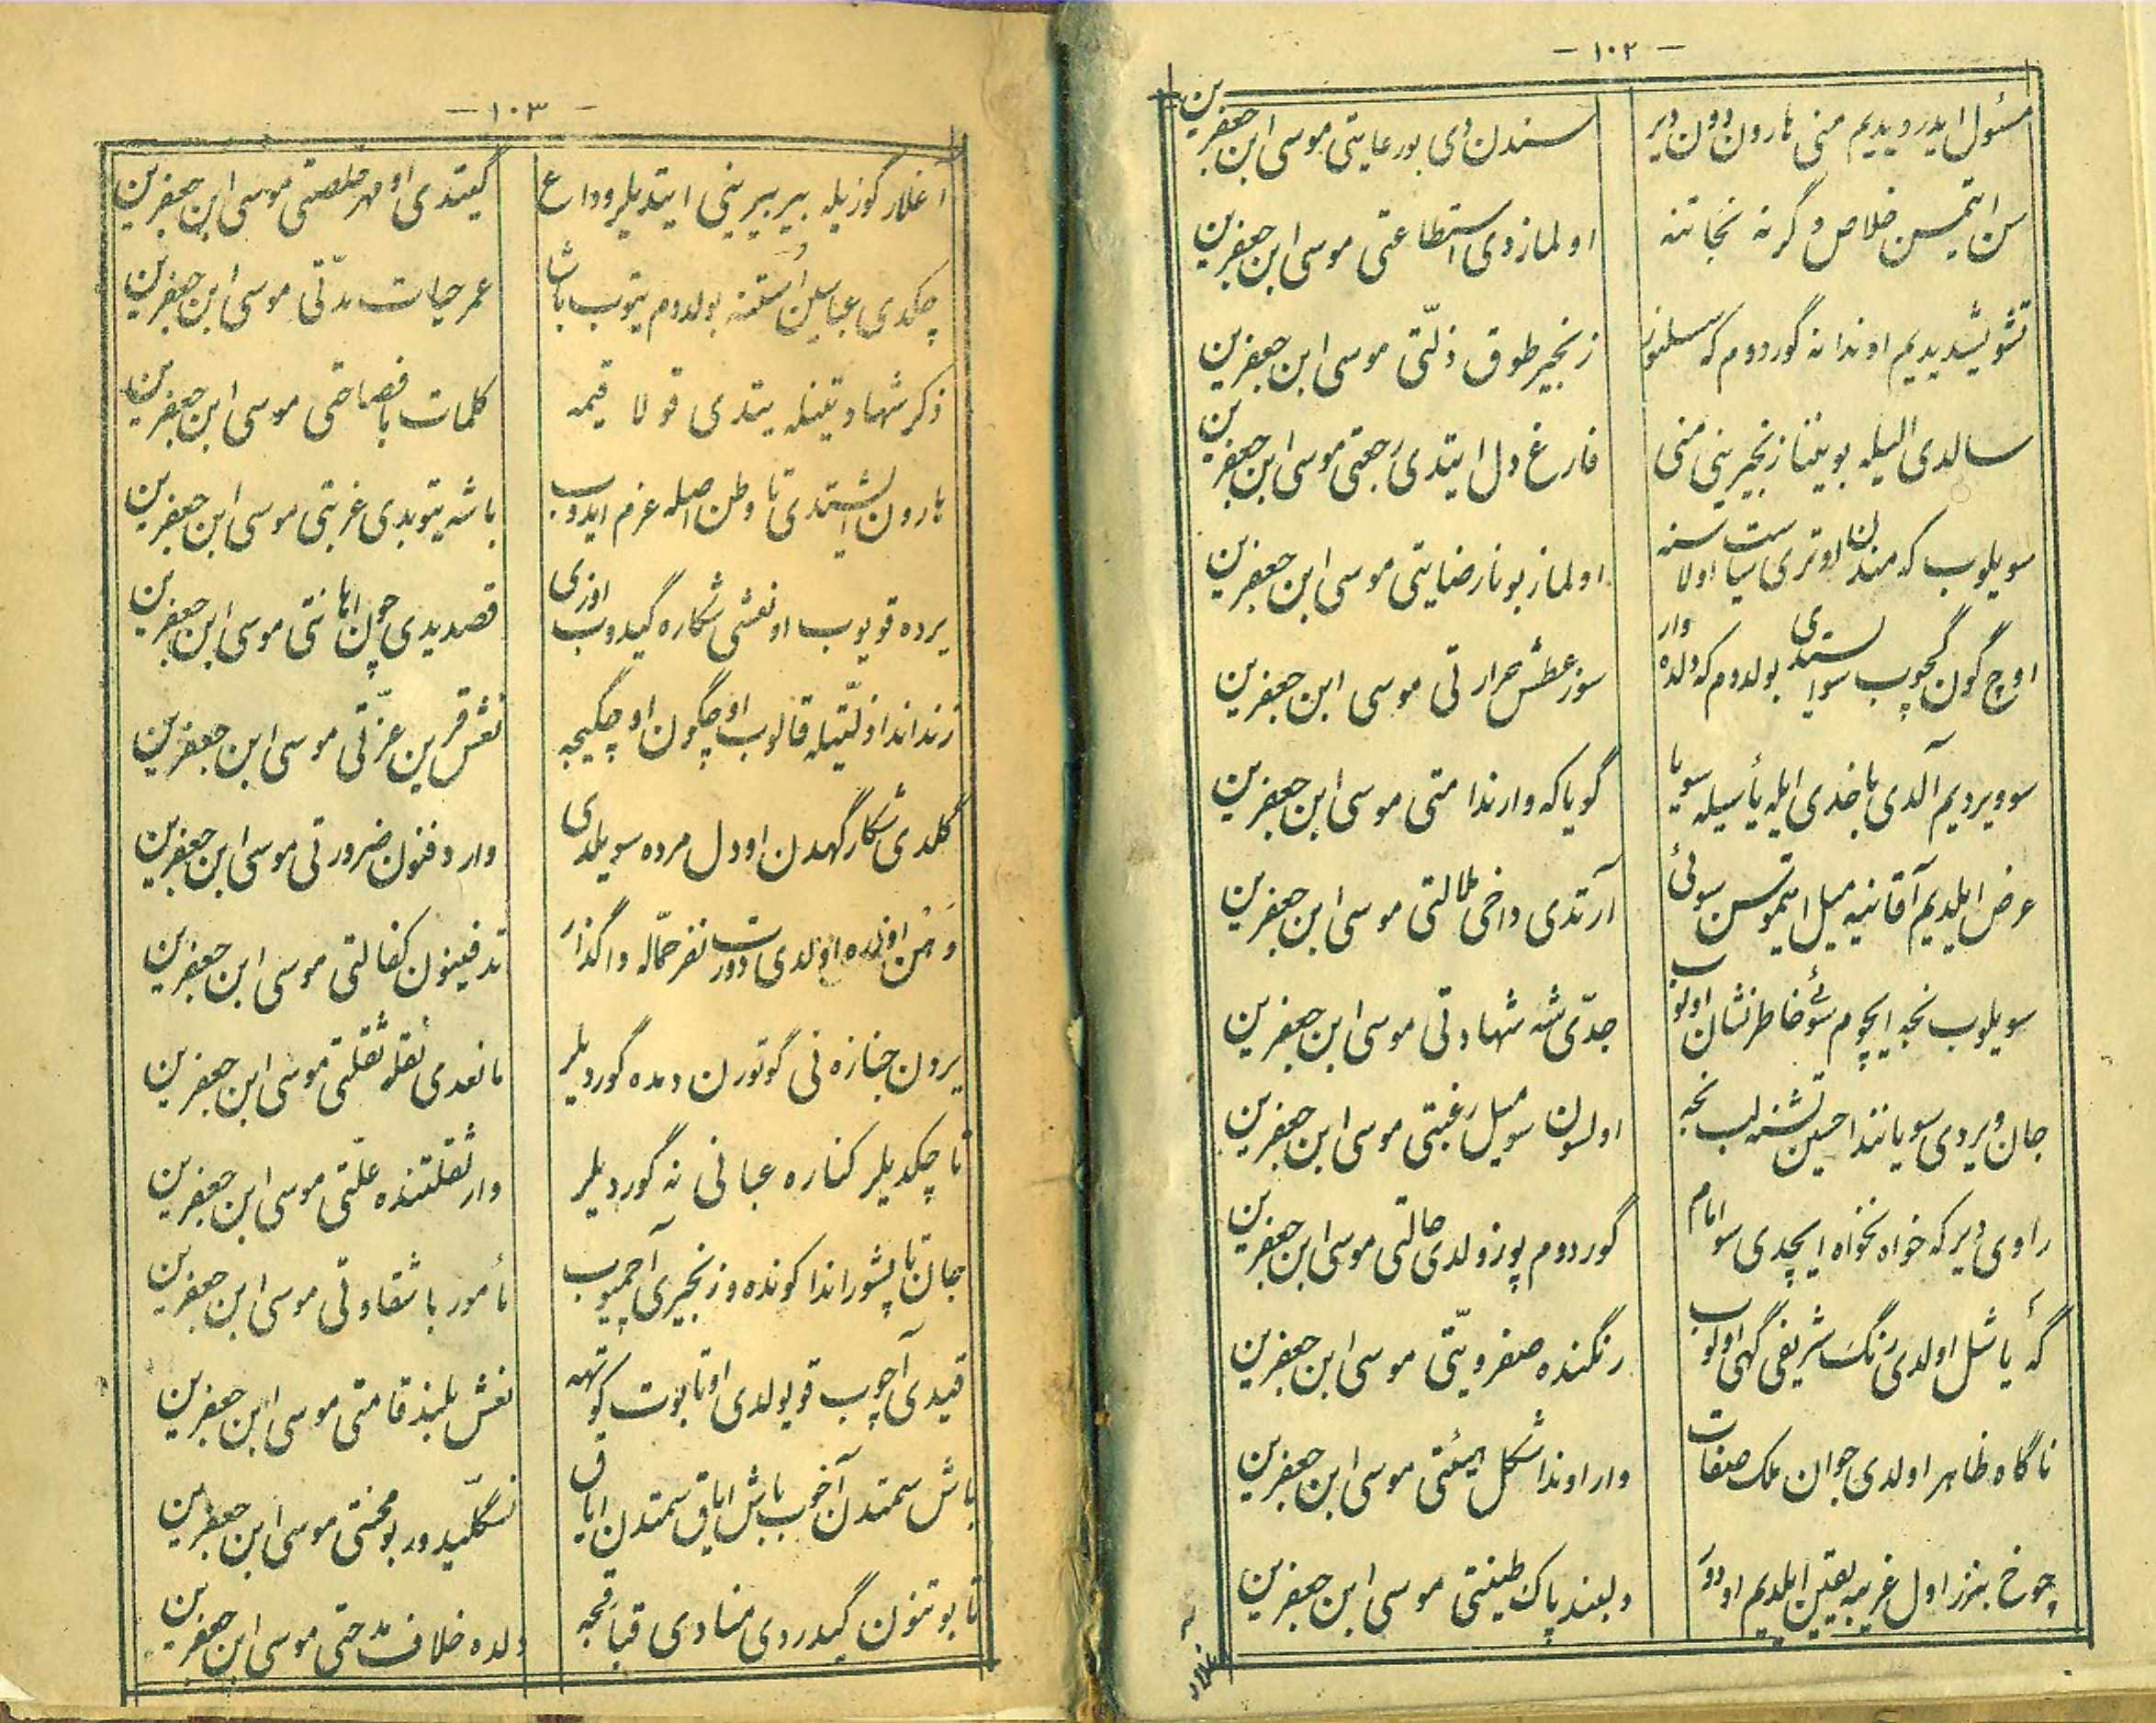 - ۱۰۲ -
مسئول ایدر دیدیم منی هارون دون دیر
سندن دی بور عایتی موسی ابن جعفرین
سن ایتمیسن خلاص و گر نه نجاتنه
اولمازدی استطاعتی موسی ابن جعفرین
تشویشدیدیم اوندا نه گوردوم که سسلنور
زنجیر طوق ذلّتی موسی ابن جعفرین
سالدی الیله بویننا زنجیرینی منی
فارغ دل ایتدی رجعتی موسی ابن جعفرین
سویلوب که مندن اوتری سیاست اولا سنه
اولماز بونا رضایتی موسی ابن جعفرین
اوچ گون گچوب سو ایستدی بولدوم که دلده وار
سوز عطش حرارتی موسی ابن جعفرین
سو ویردیم آلدی باخدی ایله یأسیله سویا
گویا که وار ندامتی موسی ابن جعفرین
عرض ایلدیم آقا نیه میل ایتموسن سوئی
آرتدی داخی ملالتی موسی ابن جعفرین
سویلوب نجه ایچوم سوئی خاطرنشان اولوب
جدّی شه شهادتی موسی ابن جعفرین
جان ویردی سو یانندا حسین تشنه لب نجه
اولسون سو میل رغبتی موسی ابن جعفرین
راوی دیر که خواه نخواه ایچدی سو امام
گوردوم پوزولدی حالتی موسی ابن جعفرین
گه یاشل اولدی رنگ شریفی گهی اولوب
رنگنده صفرویّتی موسی ابن جعفرین
ناگاه ظاهر اولدی جوان ملک صفات
وار اوندا شکل هیئتی موسی ابن جعفرین
چوخ بنزر اول غریبه یقین ایلدیم اودور
دلبند پاک طینتی موسی ابن جعفرین
- ۱۰۳ -
آغلار گوزیله بیر بیرینی ایتدیلر وداع
گیتدی او مهر خلصتی موسی ابن جعفرین
چکدی عباسین اوستنه بولدوم یتوب باشا
عمر حیات مدّتی موسی ابن جعفرین
ذکر شهادتینله یتدی قولاقیمه
کلمات بافصاحتی موسی ابن جعفرین
هارون ایشتدی تا وطن اصله عزم ایدوب
باشه یتوبدی غربتی موسی ابن جعفرین
یرده قویوب او نعشی شکاره گیدوب اوزی
قصدیدی چون اهانتی موسی ابن جعفرین
زنداندا ذلّتیله قالوب اوچ گون اوچ گیجه
نعش قرین عزّتی موسی ابن جعفرین
گلدی شکارگهدن او دل مرده سویلدی
وار دفنون ضرورتی موسی ابن جعفرین
اولدی دورت نفر حمّاله واگذار
تدفینون کفالتی موسی ابن جعفرین
یردن جنازه نی گوتورن دمده گوردیلر
مانعدی نقله ثقلتی موسی ابن جعفرین
تا چکدیلر کناره عبانی نه گوردیلر
وار ثقلتنده علّتی موسی ابن جعفرین
جان تاپشوراندا کونده و زنجیری آچمیوب
مأمور باشقاوتی موسی ابن جعفرین
قیدی آچوب قویولدی او تابوت کوتهه
نعش بلند قامتی موسی ابن جعفرین
باش سمتدن آخوب باش ایاق سمتدن ایاق
تسگلّیدور بو محنتی موسی ابن جعفرین
تابوتنون گیدردی منادی قباقجه
دلده خلاف مدحتی موسی ابن جعفرین